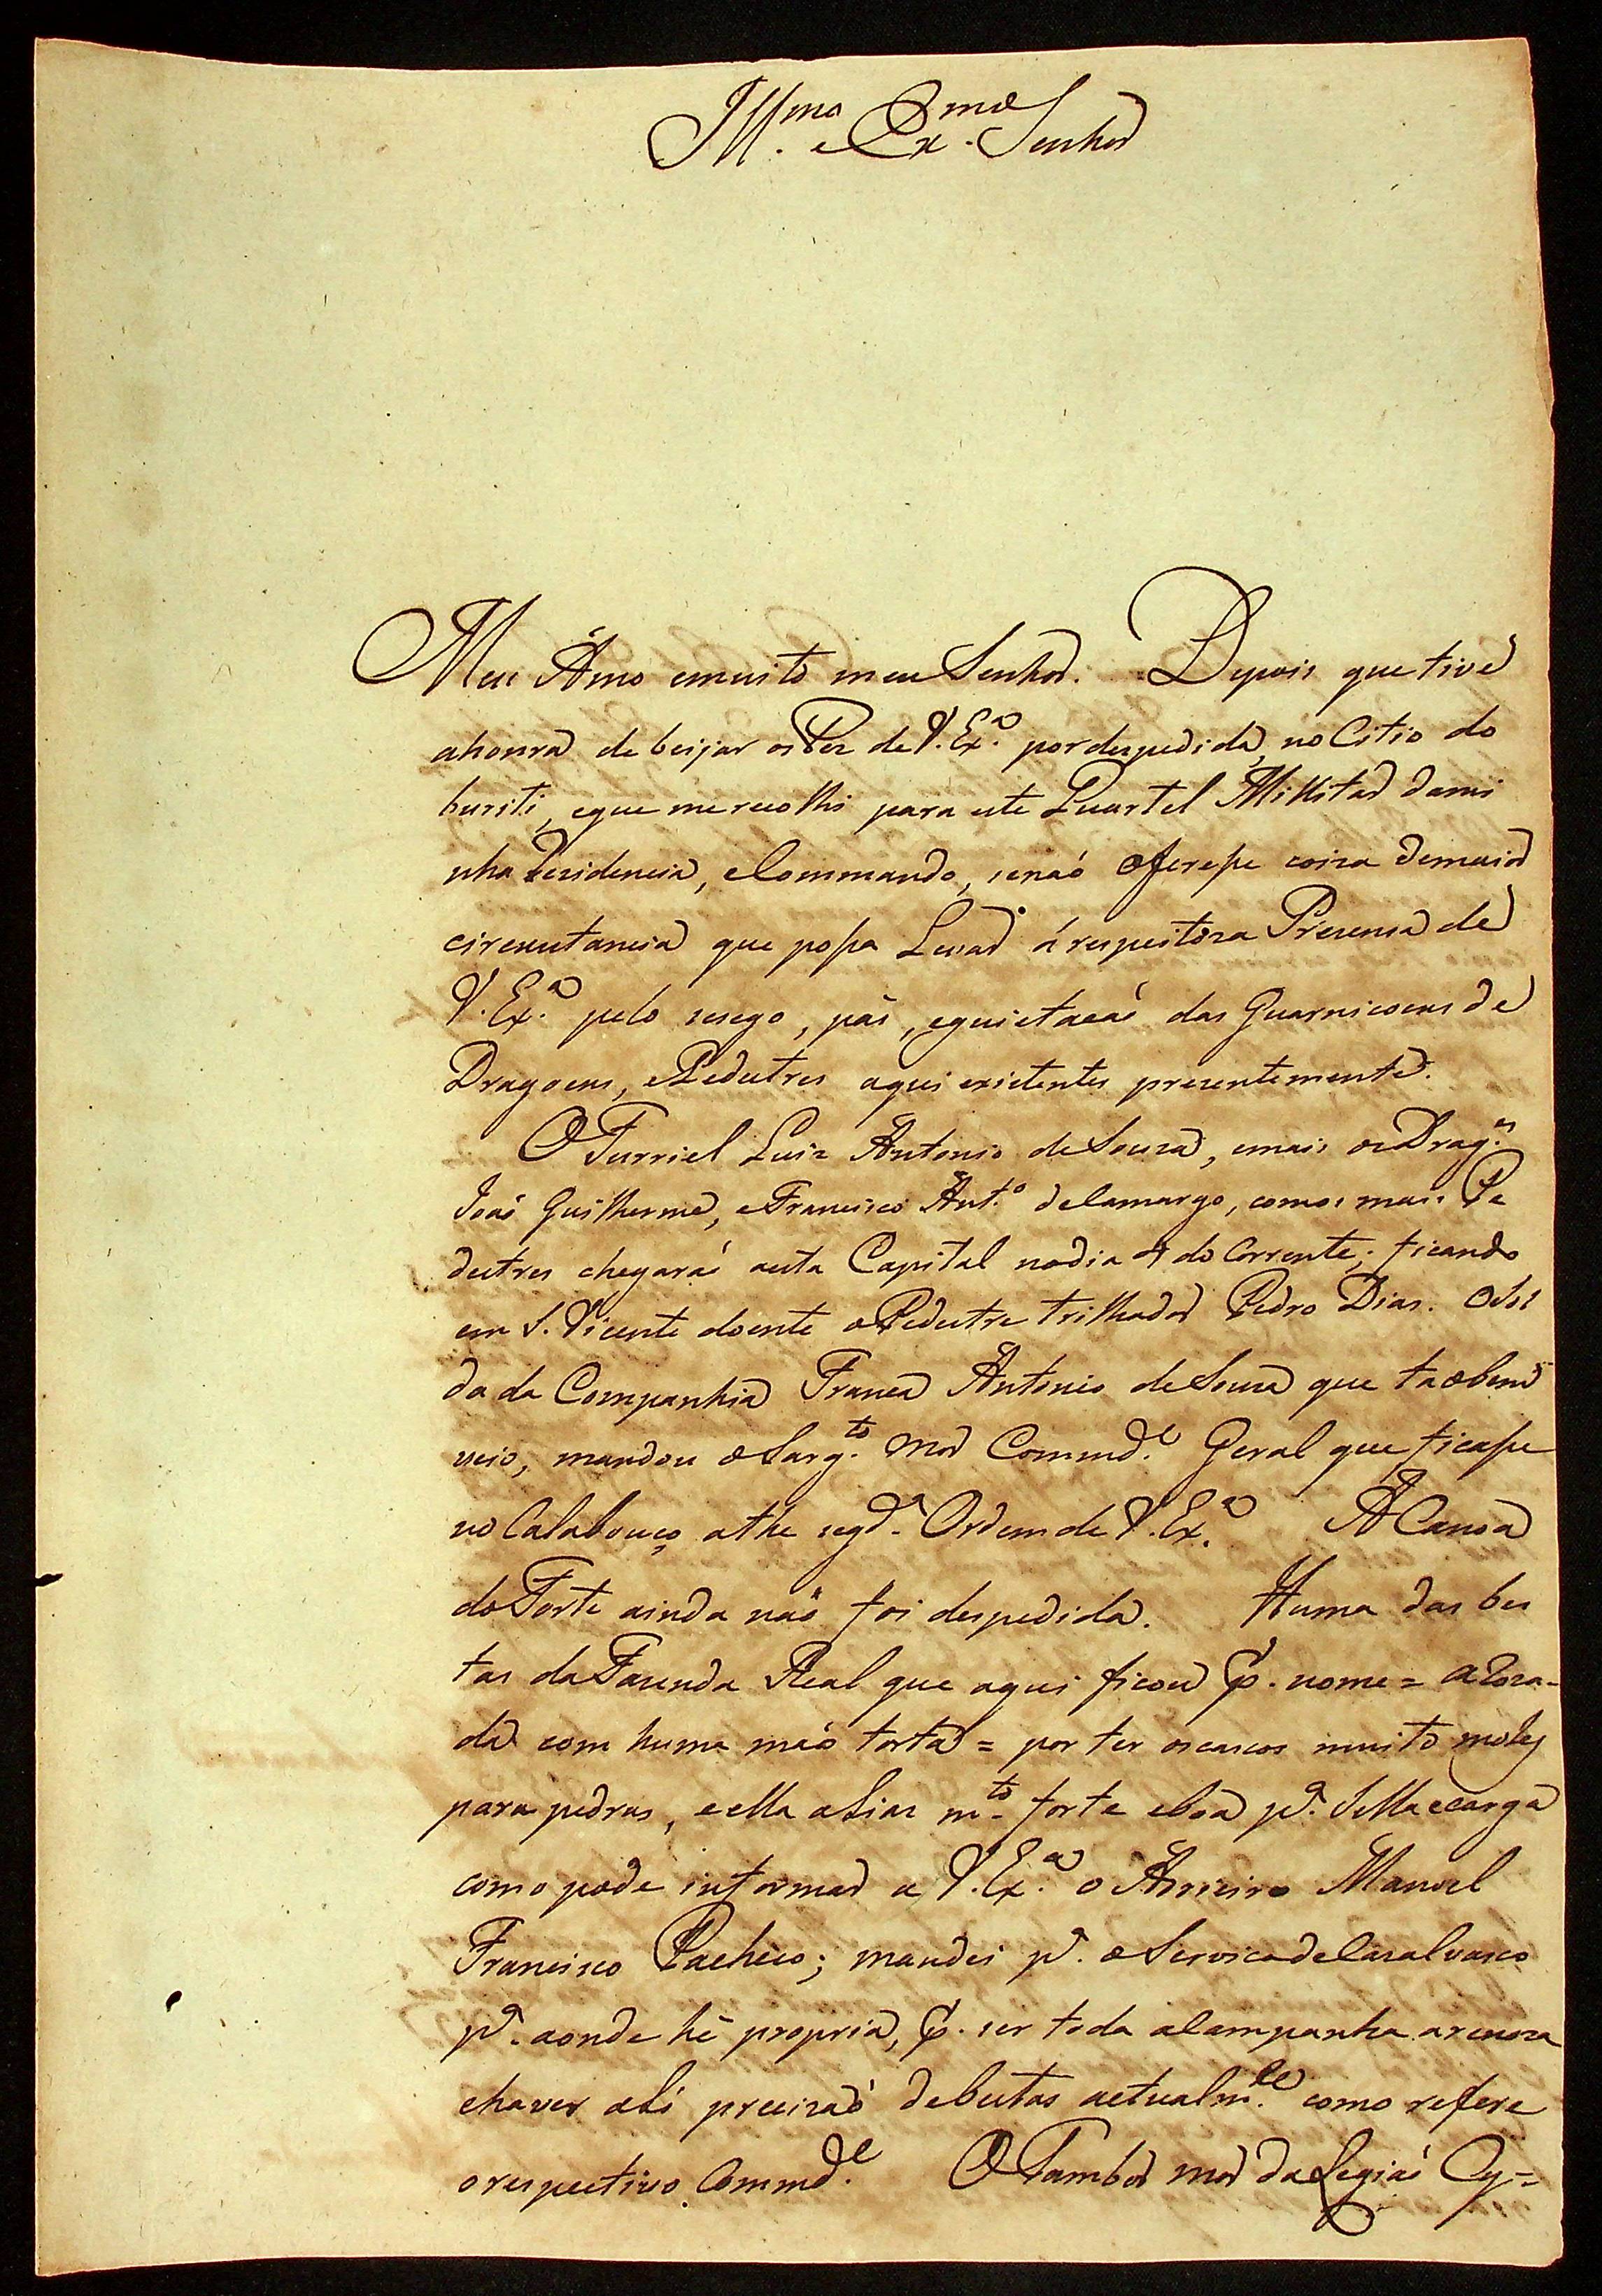 Ill.mo e Ex.mo Senhor
Meu Amo emuito meu Senhor. Depois que tive
ahonra de beijar os Pez de V. Ex.a por despedida, no Citio do
buriti, eque me recolhi para este Quartel Millitar dami
nha Rezidencia, eCommando, senaó oferesse coiza demaior
circunstancia que possa Levar á respeitoza Prezensa de
V. Ex.a pelo socego, pás, equietacaó das Guarnicoens de
Dragoens, ePedestres aqui existentes prezentemente.
O Furriel Luiz Antonio de Souza, emais os Drag.es
Joaó Guilherme, eFrancisco Ant.o deCamargo, comos mais Pe
destres chegaraó aesta Capital nodia do Corrente; ficando
em S. Vicente doente oPedestre trilhador Pedro Dias. OSol
da da Companhia Franca Antonio de Souza que taobem
veio, mandou oSarg.to Mor Commd.e Geral que ficasse
no Calabouço athe seg.da Ordem de V. Ex.a A Canoa
doForte ainda naõ foi despedida. Huma das bes
tas daFazenda Real que aqui ficou p. nome = aRoza-
da com huma maó torta = por ter oscascos muito moles
para pedras, eella aLias m.to forte eboa p.a Sella ecarga
como pode informar a V. Ex.a o Arrieiro Manoel
Francisco Pacheco; mandei p.a oServico deCazalvasco
p.a aonde hé propria, p. ser toda aCampanha arenoza
ehaver aLi precizaó debestas actualm.te como refere
orespectivo Commd.e OTambor mor daLegiaó Cy=